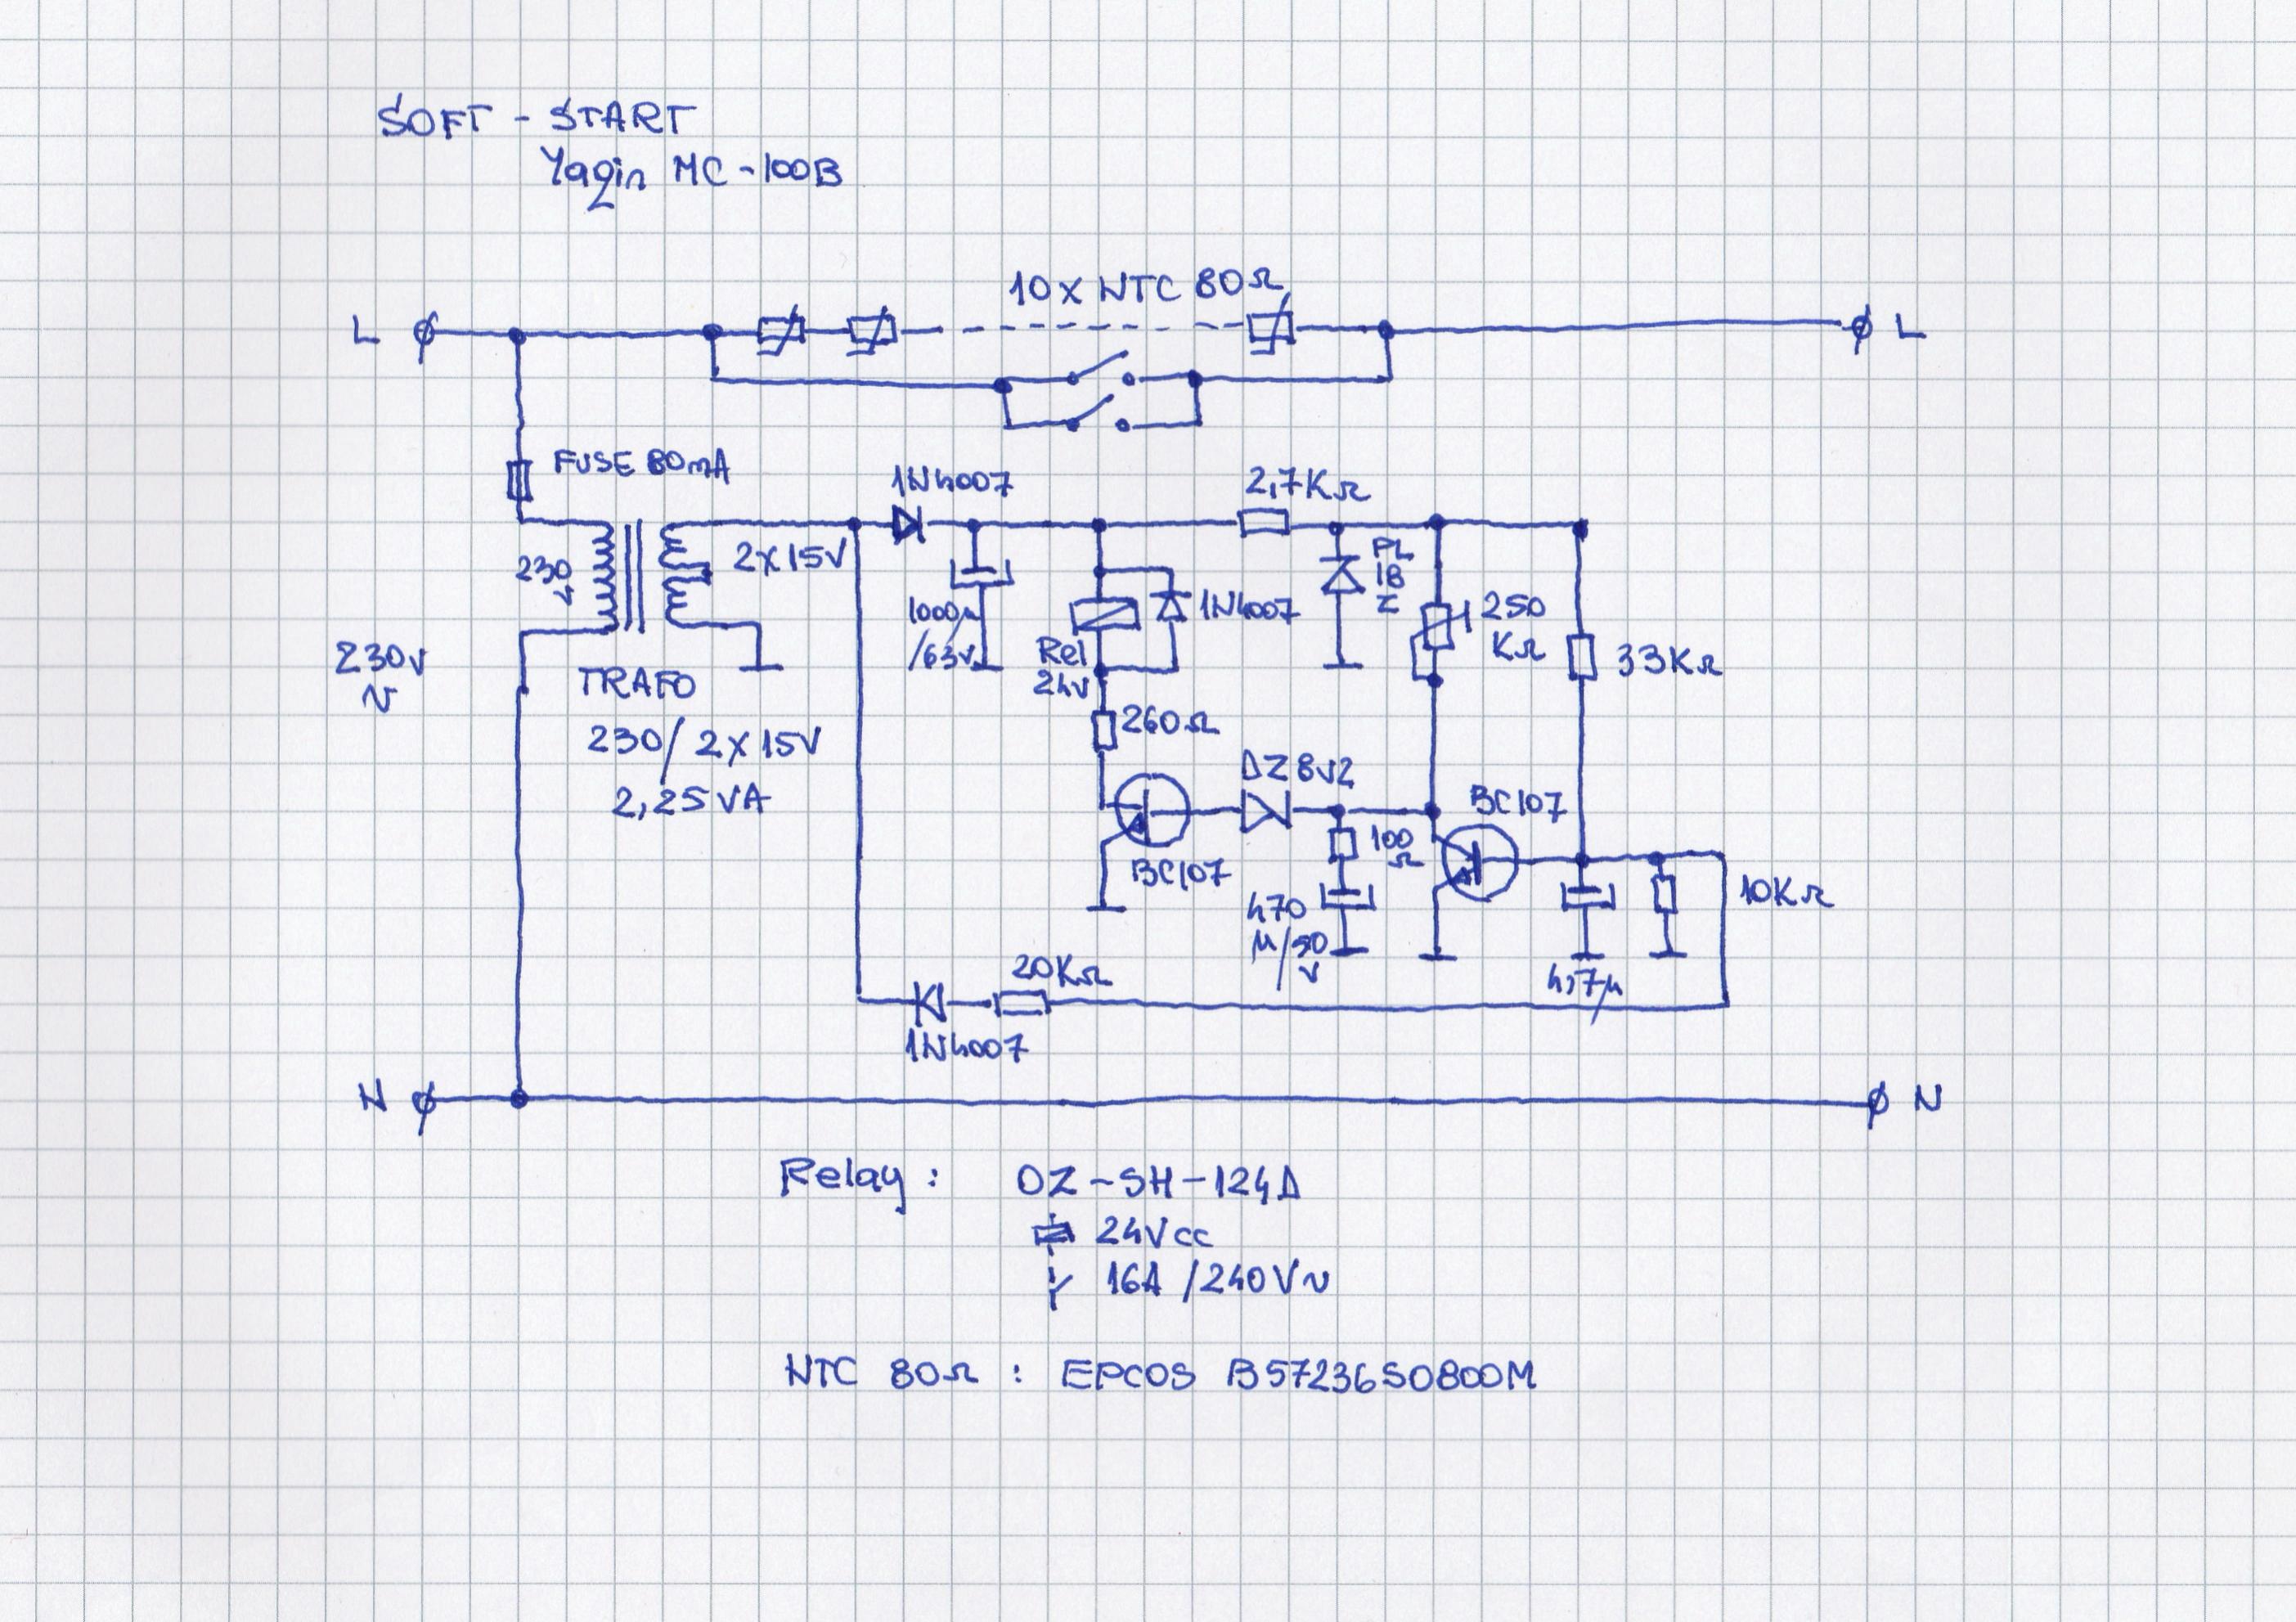 SOFT - START
Yaqin MC-100B
10x NTC 80Ω
L
L
FUSE 80mA
1N4007
2,7KΩ
230
V
2x15V
1000µ
/63V
Rel
24V
1N4007
PL
18
Z
250
KΩ
33KΩ
230V
~
TRAFO
230/2x15V
2,25VA
260Ω
DZ 8V2
BC107
BC107
100
Ω
470
µ/50
V
4,7µ
10KΩ
20KΩ
1N4007
N
N
Relay: OZ-SH-124D
24Vcc
16A /240V~
NTC 80Ω : EPCOS B57236S0800M